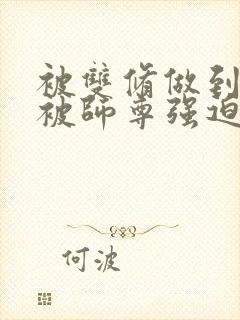 被雙脩做到
被師尊强迫
何波